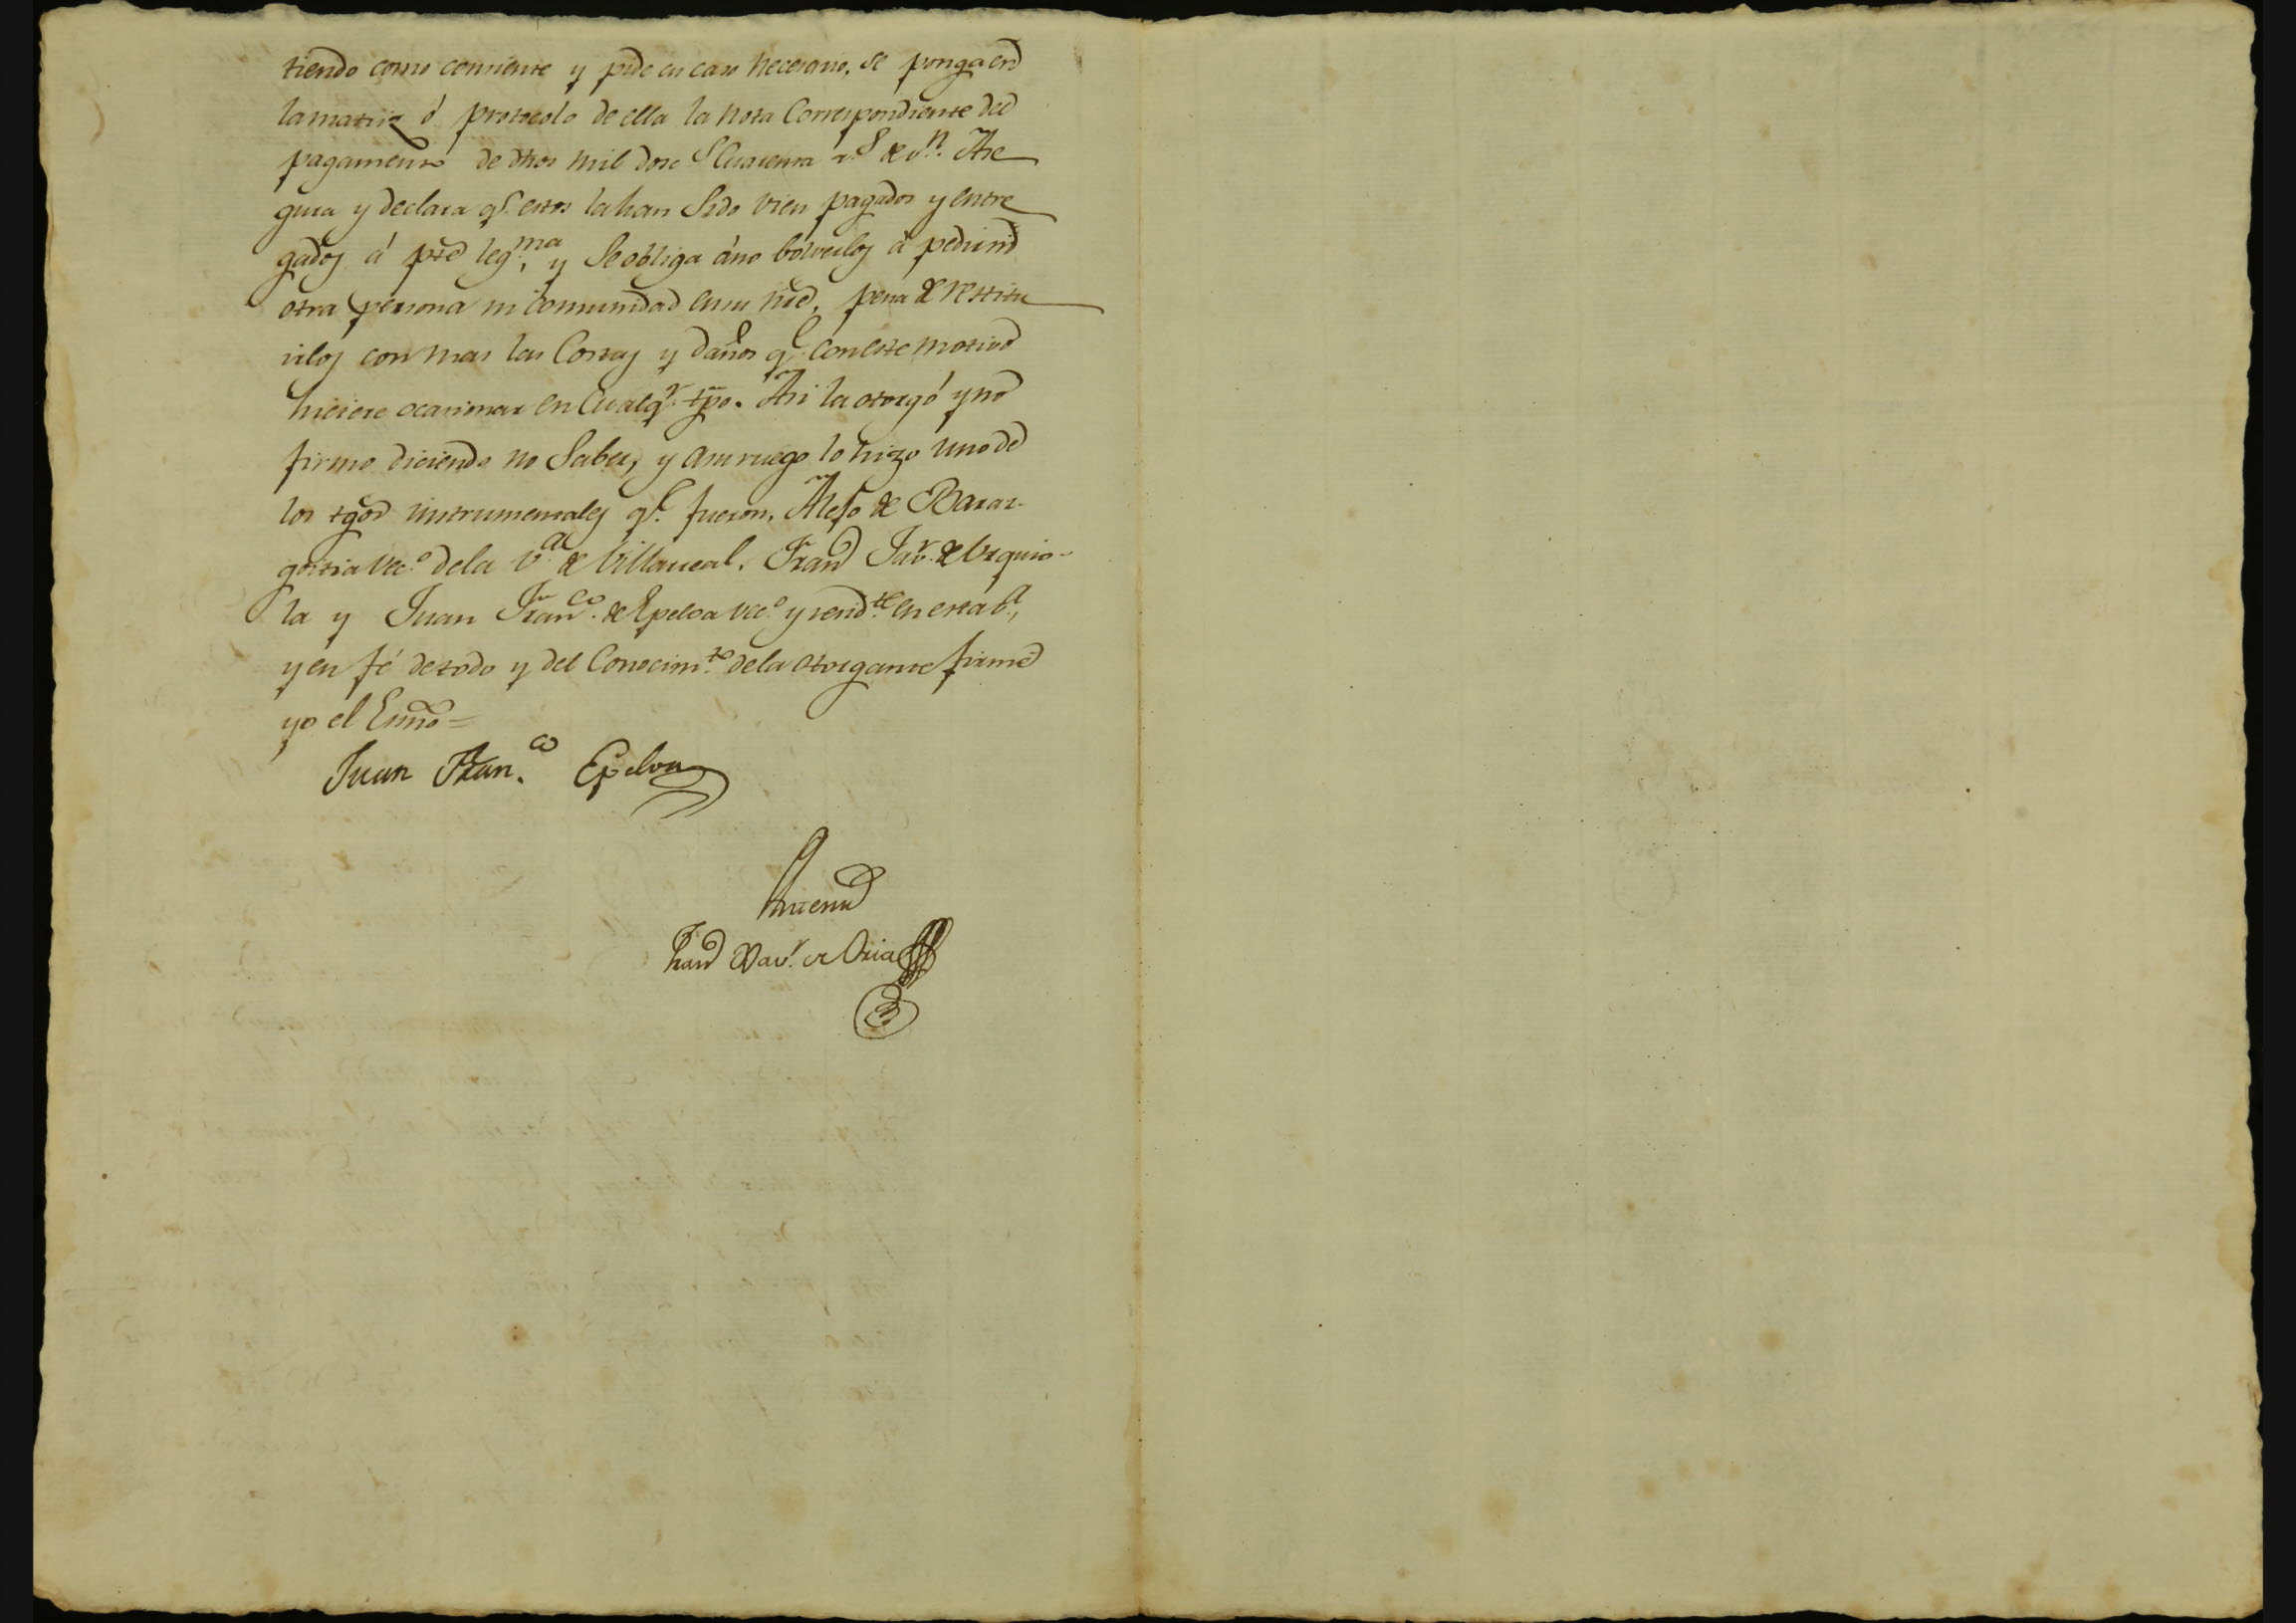 tiendo como consiente y pide en caso necesario, se ponga en
la matriz ó protocolo de ella la nota Correspondiente del
pagamento de dhos mil dosc.s Cuarenta r.s de v.n. Ase
gura y declara q.e estos la han Sido vien pagados y entre
gados á pte leg.ma, y Se obliga á no bolverlos á pedir ni
otra persona ni comunidad en su nre, pena de restitu
irlos con mas las Costas y daños q.e con este motivo
hiciere ocasionar en Cualq.r tpo. Asi la otorgó y no
firmo diciendo no Saber, y a su ruego lo hizo uno de
los tgos instrumentales q.e fueron,
vec.o de la v.a de Villarreal, Fran.co Jav.r de Urquio-
la y Juan Fran.co de Epelva vec.o y resid.te en esta v.a,
y en fé de todo y del Conocim.to de la otorgante firmé
yo el Essno =
Juan Fran.co Epelva
Ante mi
Fran.co Xav.r de Oria